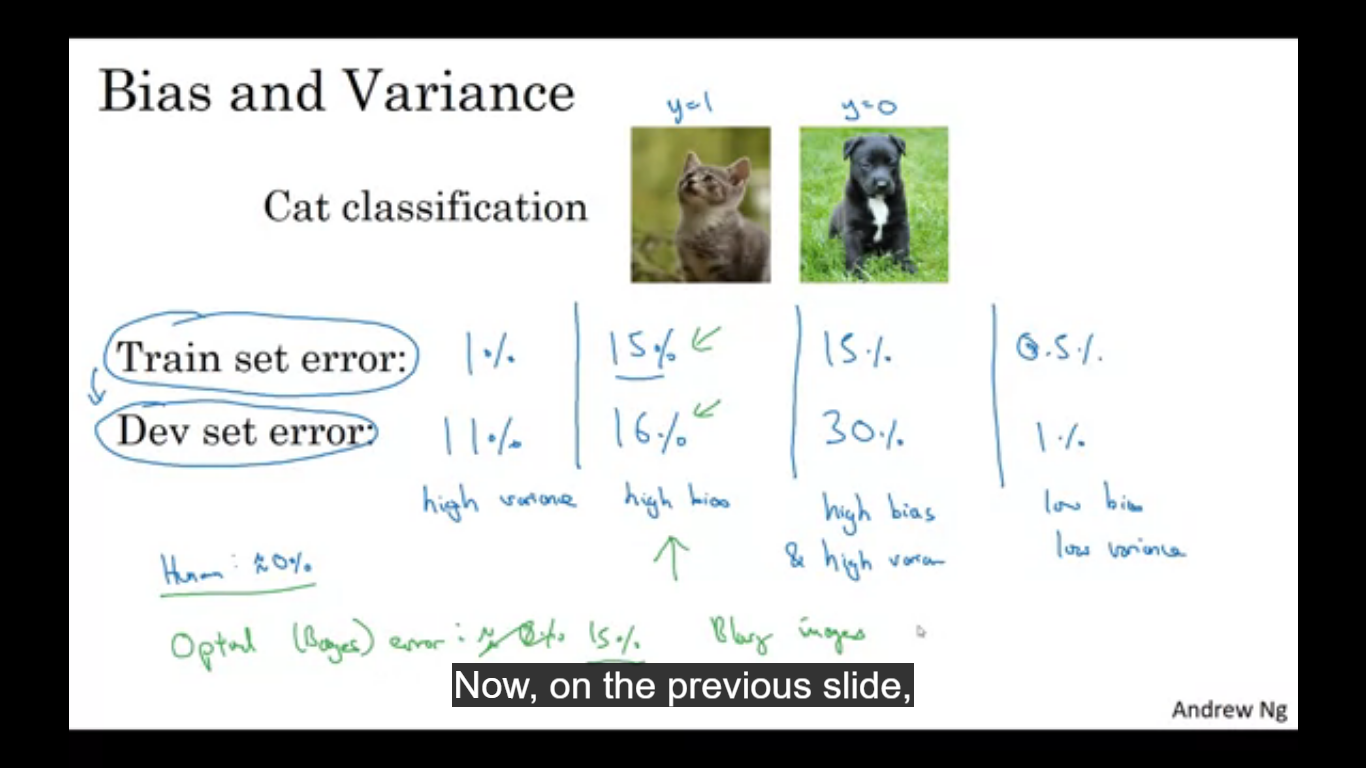 Bias and Variance
y=1 y=0
Cat classification
Train set error: 1% 15% 15% 0.5%
Dev set error: 11% 16% 30% 1%
high variance high bias high bias low bias
& high low variance
Human: ≈0%
(Bayes) error: 15% images
Now, on the previous slide,
Andrew Ng